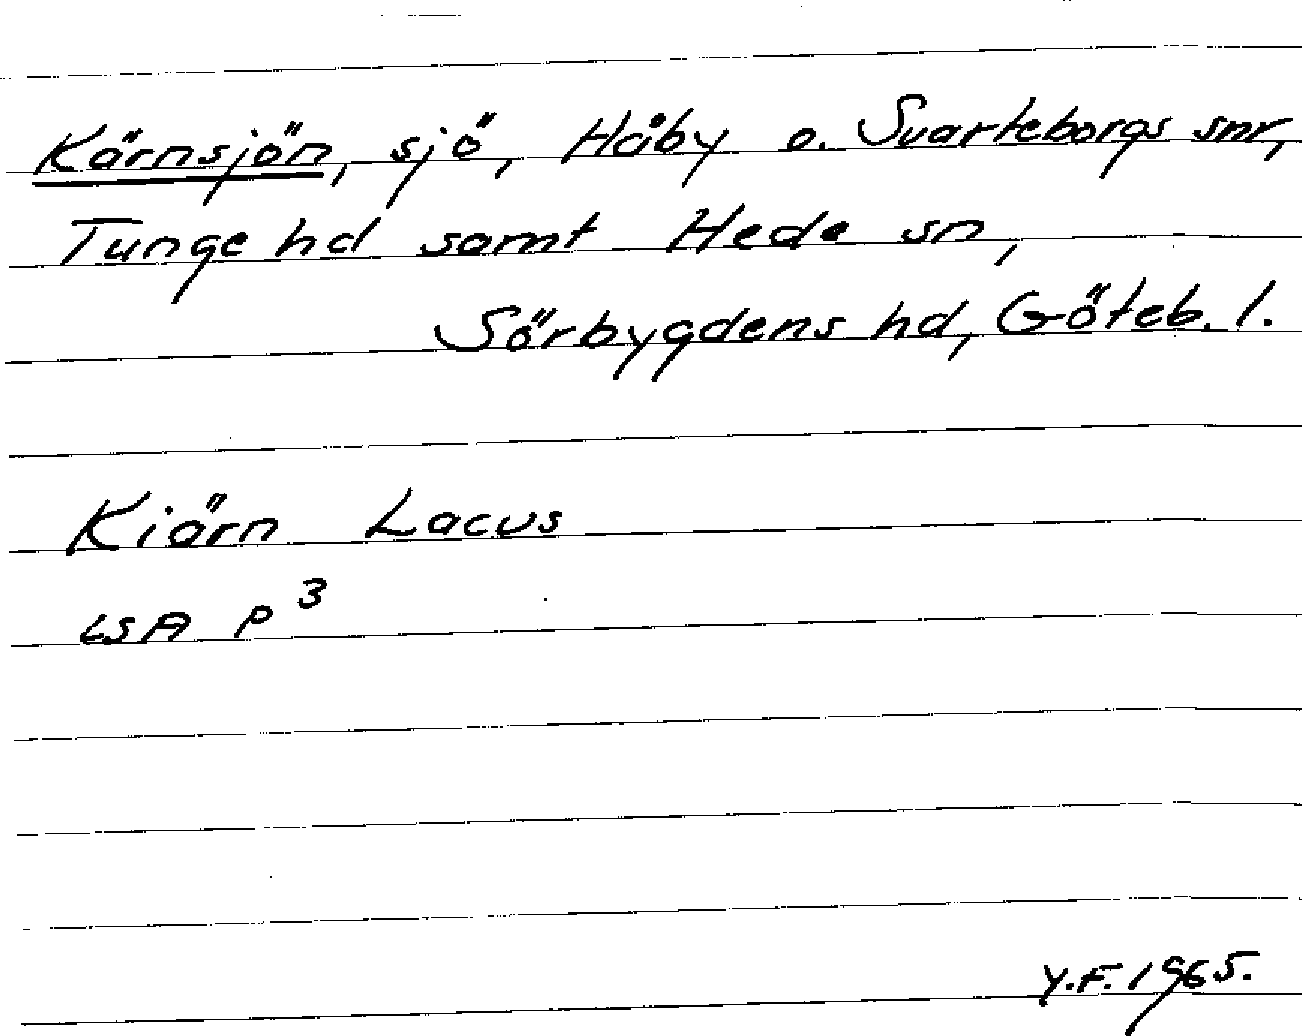 Kärnsjön, sjö, Håby o. Svarteborgs snr,
Tunge hd samt Hede sn,
Sörbygdens hd, Göteb. l.
Kiärn Lacus
LSA P 3
Y.F. 1965.